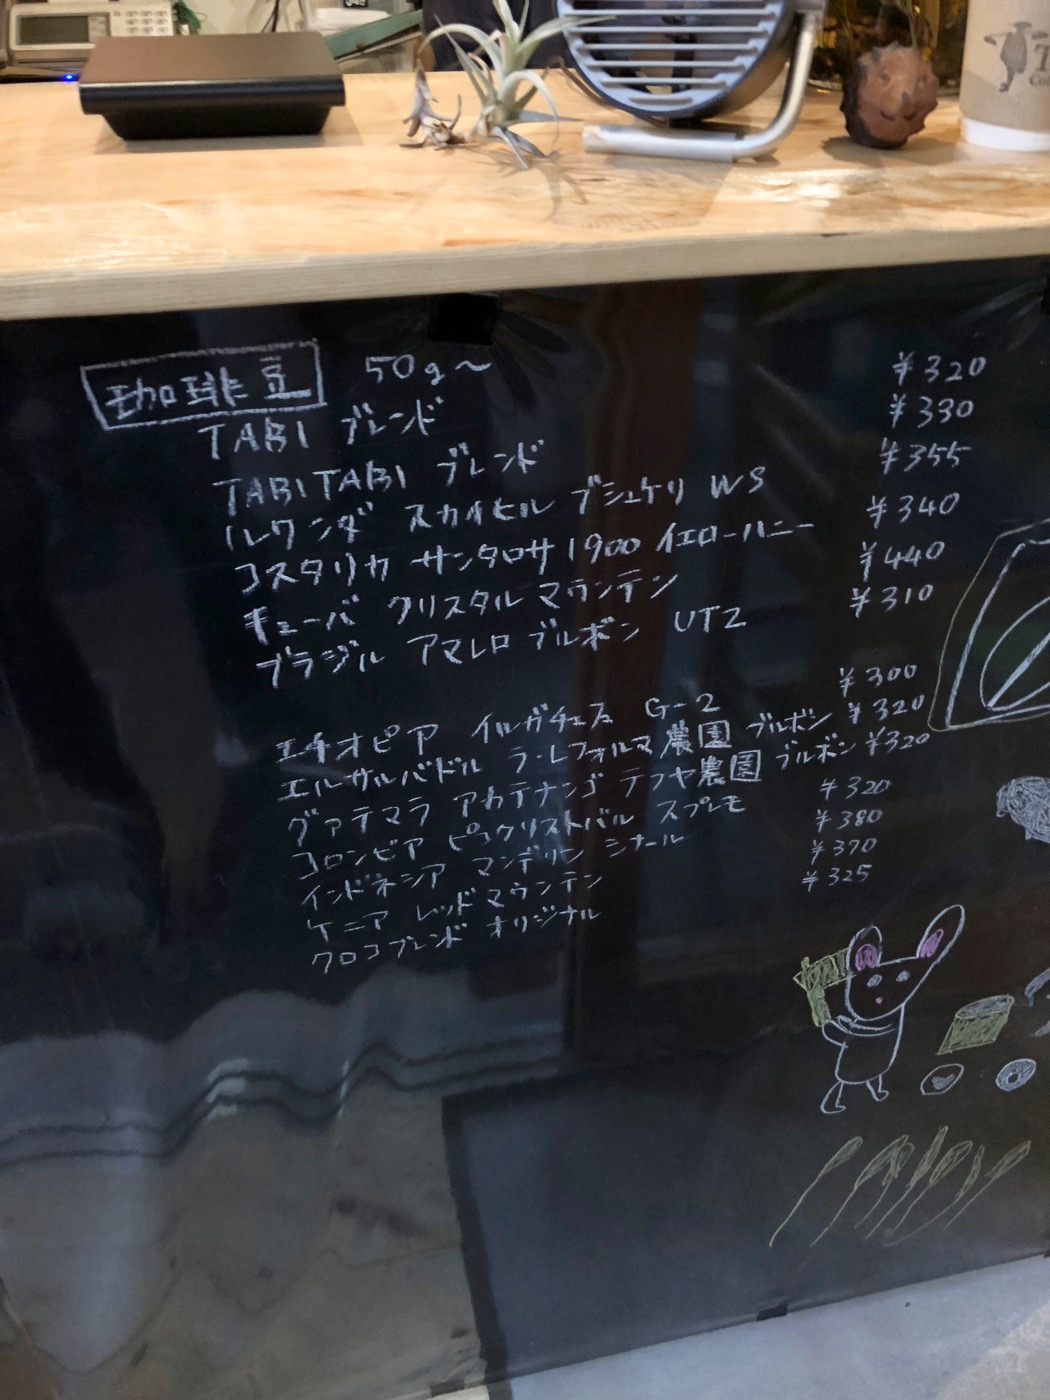 珈琲豆 50g〜
TABI ブレンド ¥320
TABITABI ブレンド ¥330
ルワンダ スカイヒル ブシェケリ WS ¥355
コスタリカ サンタロサ1900 イエローハニー ¥340
キューバ クリスタルマウンテン ¥440
ブラジル アマレロブルボン UTZ ¥310
エチオピア イルガチェフェ G-2 ¥300
エルサルバドル ラ・レフォルマ農園 ブルボン ¥320
グァテマラ アカテナンゴ テフヤ農園 ブルボン ¥320
コロンビア クリストバル スプレモ ¥320
インドネシア マンデリン シナール ¥380
ケニア レッドマウンテン ¥370
クロコブレンド オリジナル ¥325